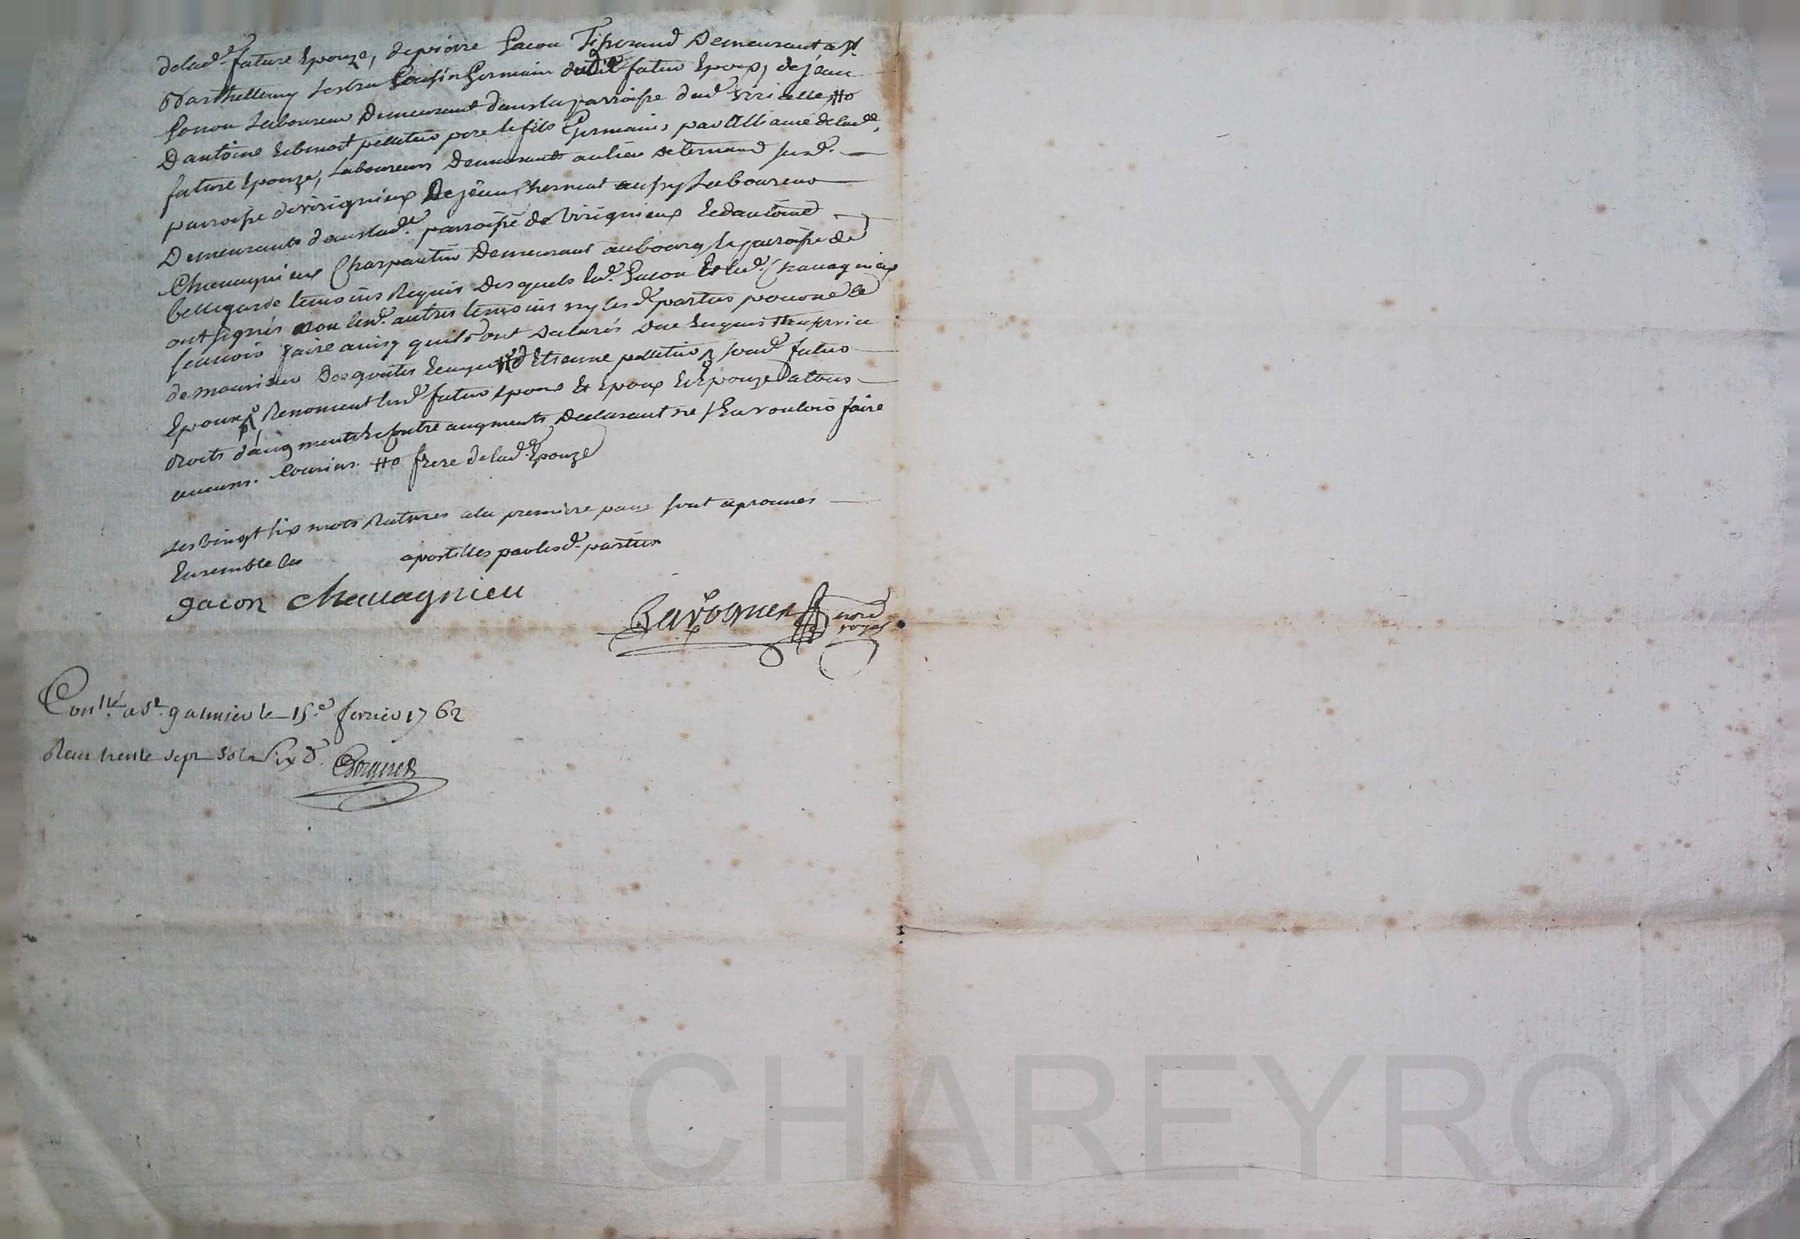 delad.e future Epouze, depierre Gacon Tisserand Demeurant a St
Barthellemy Lestra Cousin Germain dudit futur Epoux, de jean
Laboureur Demeurant dans la parroisse dud. Viricelle #o
D'antoine Et benoit pelletier pere Et fils Germains, par alliance delad.e
future Epouze, Laboureurs Demeurants au lieu de susd.
parroisse de virignieux De jean aussy Laboureur
Demeurants dans lad.e parroisse de Virignieux Et d'antoine
Chavagnieux Charpentier Demeurant au bourg Et parroisse de
bellegarde temoins Requis Desquels led. Gacon Et led. Chavagnieux
ont signés non lesd. autres temoins ny les d. parties pour ne le
scavoir faire ainsy quils ont Declarés De Enquis
de Et Etienne pelletier sousd. futur
Epoux Renoncent lesd. futur Epoux Et Epouze a tous
droits d'augments Et contre augments Declarant ne En vouloir faire
aucuns. Cousins. #o frere delad.e Epouze
Les vingt six mots Ratures ala premiere page sont aprouvés
Ensemble les apostilles par les d. parties
gacon chavagnieu
not.e royal
Con.lé a St. galmier le 15.e fevrier 1762
Reçu trente sept sols six d.
Pascal CHAREYRON